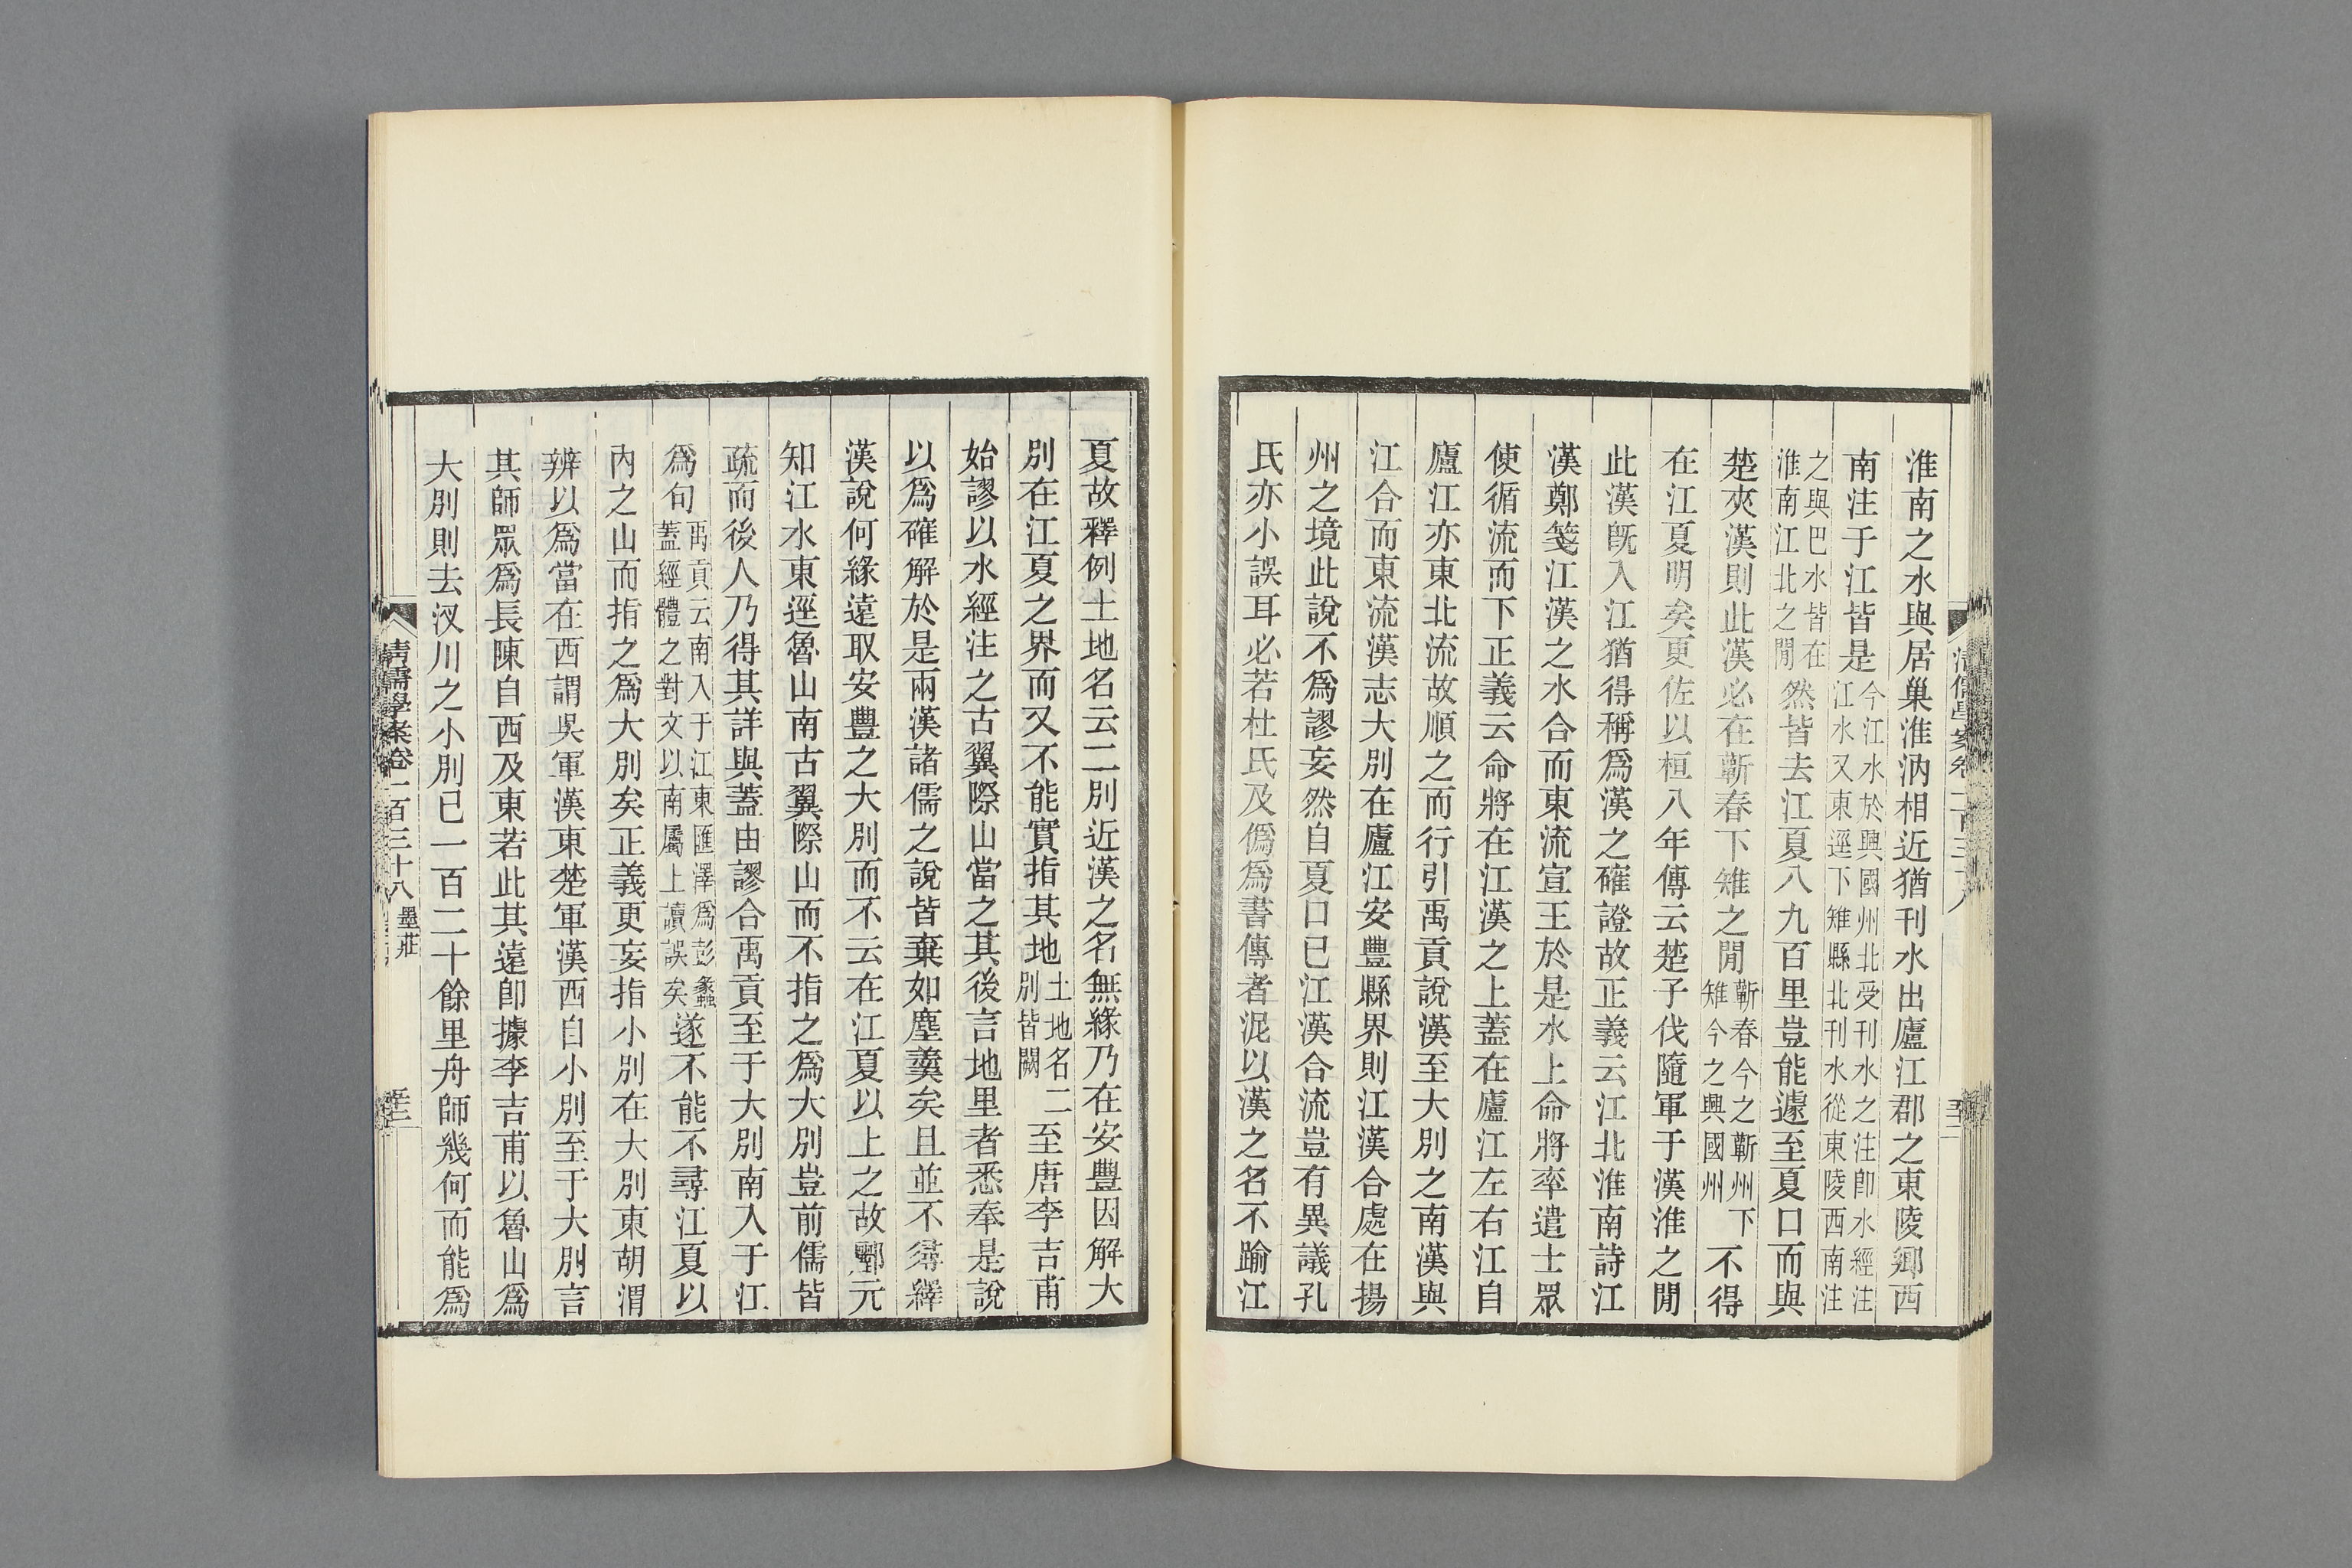 淮南之水與居巢淮汭相近猶刊水出廬江郡之東陵鄉西
南注于江皆是今江水於興國州北受刊水之注卽水經注江水又東逕下雉縣北刊水從東陵西南注
之與巴水皆在淮南江北之閒然皆去江夏八九百里豈能遽至夏口而與
楚夾漢則此漢必在蘄春下雉之閒蘄春今之蘄州下雉今之興國州不得
在江夏明矣更佐以桓八年傳云楚子伐隨軍于漢淮之閒
此漢旣入江猶得稱爲漢之確證故正義云江北淮南詩江
漢鄭箋江漢之水合而東流宣王於是水上命將率遣士眾
使循流而下正義云命將在江漢之上蓋在廬江左右江自
廬江亦東北流故順之而行引禹貢說漢至大別之南漢與
江合而東流漢志大別在廬江安豐縣界則江漢合處在揚
州之境此說不爲謬妄然自夏口已江漢合流豈有異議孔
氏亦小誤耳必若杜氏及僞爲書傳者泥以漢之名不踰江
夏故釋例土地名云二別近漢之名無緣乃在安豐因解大
別在江夏之界而又不能實指其地土地名二別皆闕至唐李吉甫
始謬以水經注之古翼際山當之其後言地里者悉奉是說
以爲確解於是兩漢諸儒之說皆棄如塵羹矣且並不尋繹
漢說何緣遠取安豐之大別而不云在江夏以上之故酈元
知江水東逕魯山南古翼際山而不指之爲大別豈前儒皆
疏而後人乃得其詳與蓋由謬合禹貢至于大別南入于江
爲句禹貢云南入于江東匯澤爲彭蠡蓋經體之對文以南屬上讀誤矣遂不能不尋江夏以
內之山而指之爲大別矣正義更妄指小別在大別東胡渭
辨以爲當在西謂吳軍漢東楚軍漢西自小別至于大別言
其師眾爲長陳自西及東若此其遠卽據李吉甫以魯山爲
大別則去汊川之小別已一百二十餘里舟師幾何而能爲
清儒學案卷一百三十八 墨莊